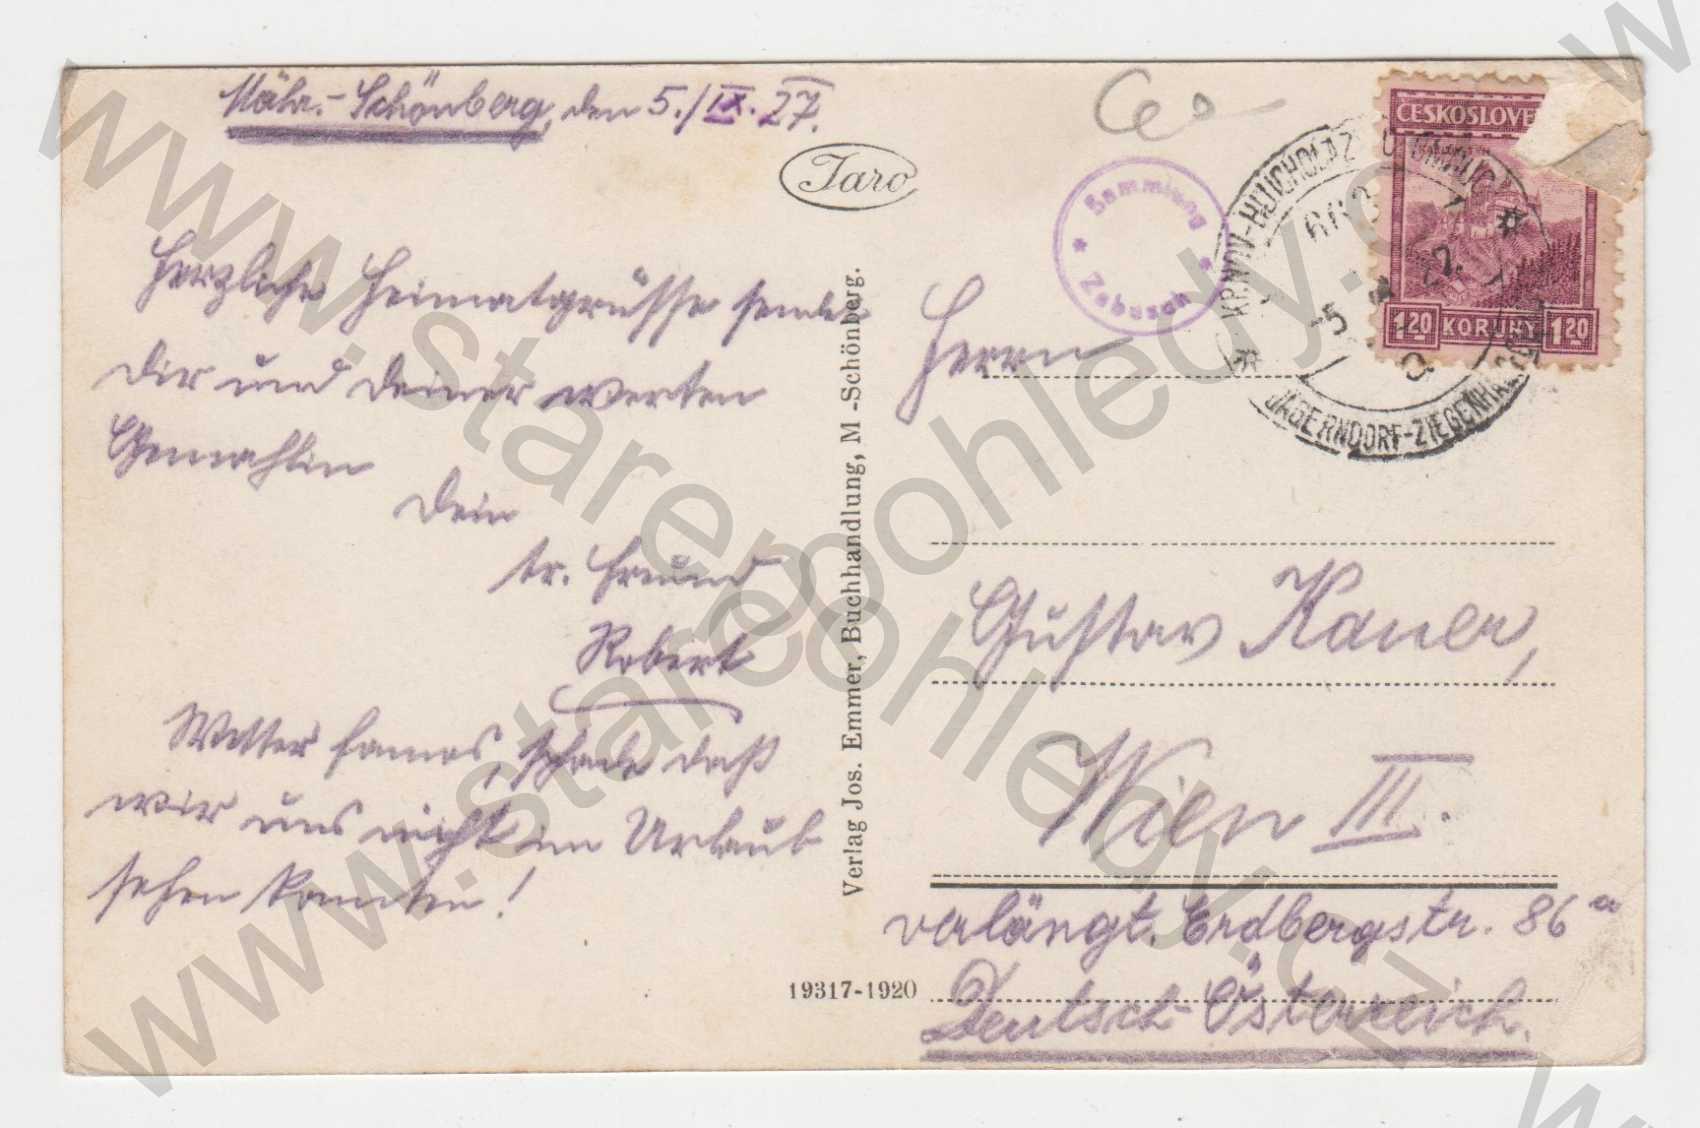 Mähr.-Schönberg, den 5./IX. 27.
Taro
Herzliche Heimatgrüsse sendet
Dir und Deiner werten
Gemahlin
Dein
tr. Freund
Robert
Wetter famos, schade daß
wir uns nicht im Urlaub
sehen konnten!
Verlag Jos. Emmer, Buchhandlung, M -Schönberg.
19317-1920
Sammlung
* Zabusch *
ČESKOSLOVE
1·20 KORUNY 1·20
KRNOV-HUJCHOLAZ
JÄGERNDORF-ZIEGENHALS
Herrn
Gustav Kauer,
Wien III.
verlängt. Erdbergstr. 86a
Deutsch-Österreich.
www.starepohledy.cz
www.starepohledy.cz